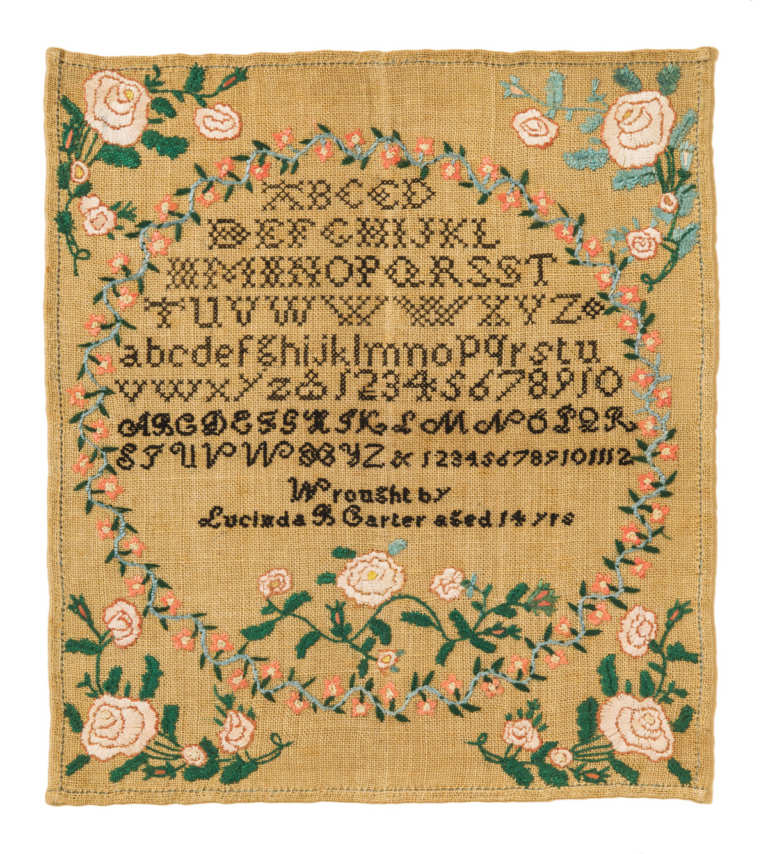 ABCCD
DEFGHIJKL
MMNNOPQRSST
TUVWWWXYZ
abcdefghijklmnopqrstu
vwxyz&12345678910
ABCDEFGHIKLMNOPQR
STUVWXYZ&123456789101112
Wrought by
Lucinda B Carter aged 14 yrs